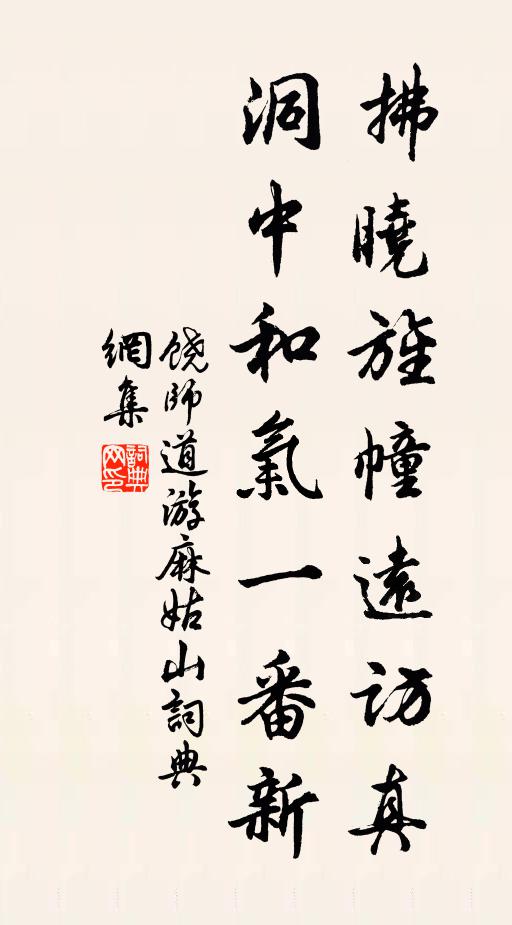 拂曉旌幢遠訪真
洞中和氣一番新
饒師道游麻姑山詞典
網集
詞典網印